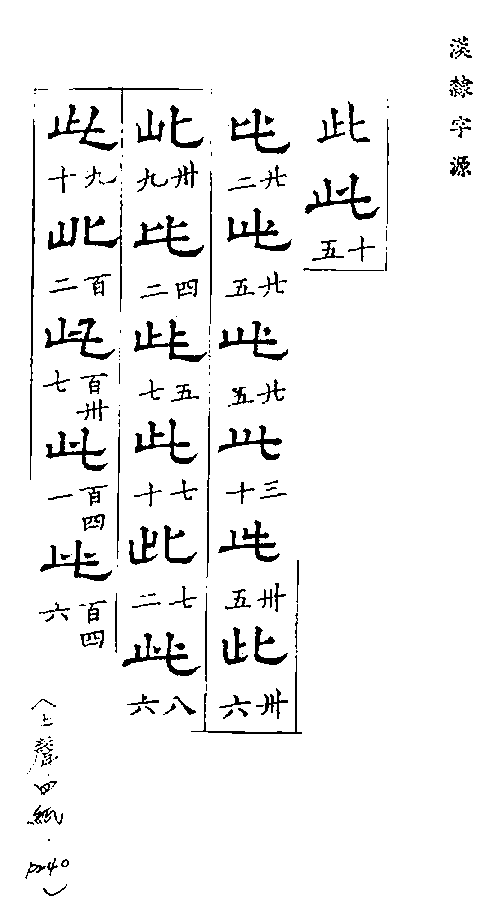 漢隸字源
此此十五
此廿二此廿五此廿五此三十此卅五此卅六
此卅九此四二此五七此七十此七二此八六
此九十此百二此百卅七此百四一此百四六
(上聲·四紙·p240)